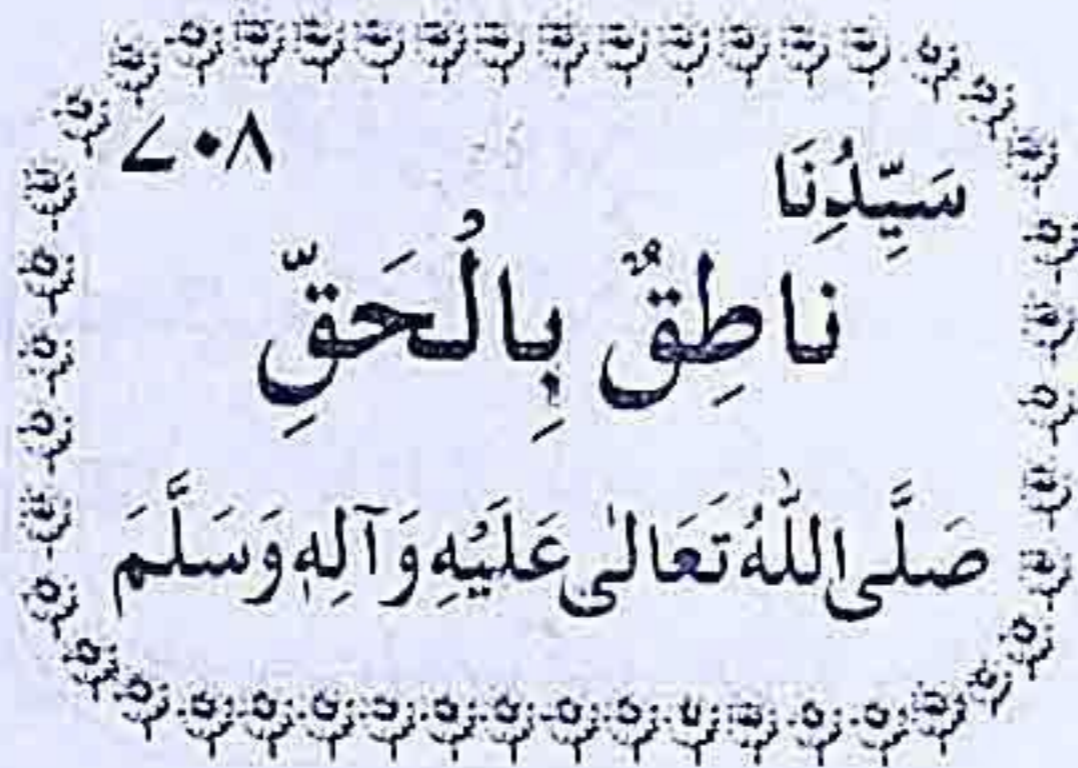 سَيِّدُنَا ٧٠٨
نَاطِقٌ بِالْحَقِّ
صَلَّى اللّٰهُ تَعَالٰى عَلَيْهِ وَآلِهٖ وَسَلَّمَ